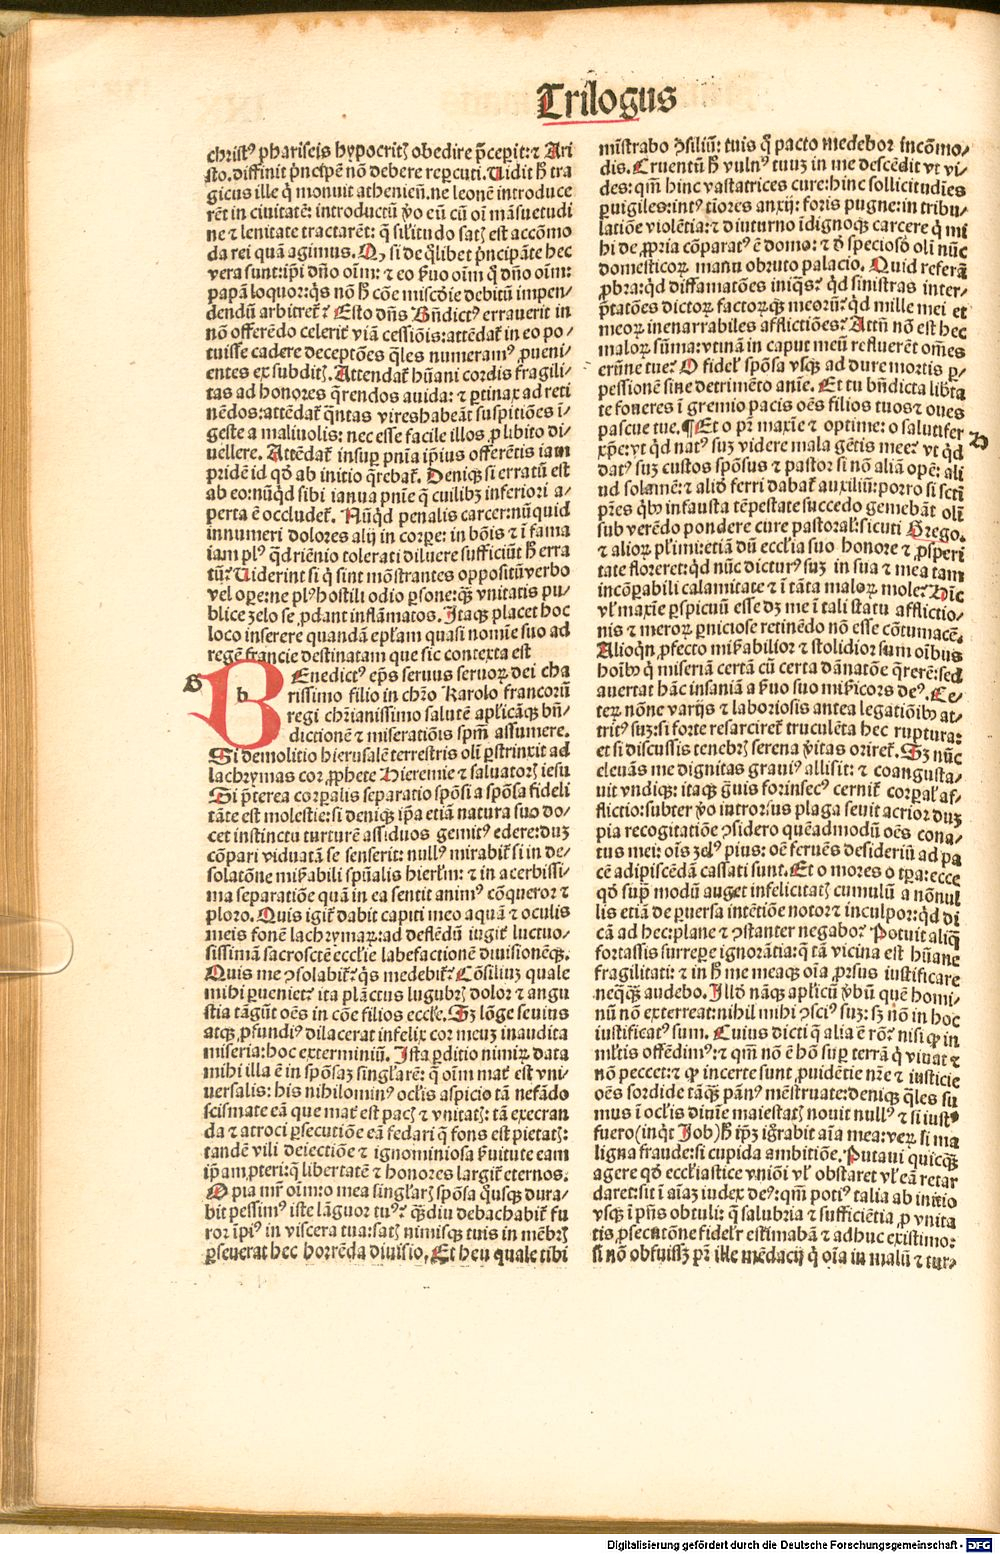 Trilogus
christꝰ phariseis hypocritꝭ obedire p̄cepit: ⁊ Ari
sto. diffinit pͥncipē nō debere reꝑcuti. Uidit h̄ tra
gicus ille ꝙ monuit atheniēn. ne leonē introduce
rēt in ciuitatē: introductū ꝟo eū cū oī māsuetudi
ne ⁊ lenitate tractarēt: ꝙ sil'itudo satꝭ est accōmo
da rei quā agimus. Qꝫ si de q̄libet pͥncipāte hec
vera sunt: ip̄i dn̄o oīm: ⁊ eo ẜuo oīm ꝙ dn̄o oīm:
papā loquor: qͥs nō h̄ cōe miscd̓ie debitū impen/
dendū arbitret̄? Esto dn̄s Bn̄dictꝰ errauerit in
nō offerēdo celerit̓ viā cessiōis: attēdat̄ in eo po/
tuisse cadere deceptōes q̄les numeramꝰ ꝓueni/
entes ex subditꝭ. Attendat̄ hūani cordis fragili/
tas ad honores q̄rendos auida: ⁊ ꝑtinax ad reti
nēdos: attēdat̄ q̄ntas vires habeāt suspitiōes ī/
geste a maliuolis: nec esse facile illos ꝓ libito di/
uellere. Attēdat̄ insuꝑ pn̄ia ip̄ius offerētis iam
pridē id qd̓ ab initio q̄rebat̄. Deniqꝫ si erratū est
ab eo: nūqͥd sibi ianua pn̄ie q̄ cuilibꝫ inferiori a/
perta ē occludet̄. Nūqͥd penalis carcer: nūquid
innumeri dolores alij in corꝑe: in bōis ⁊ ī fama
iam plꝰ q̄driēnio tolerati diluere sufficiūt h̄ erra
tū? Uiderint si q̄ sint mōstrantes oppositū verbo
vel oꝑe: ne plꝰ hostili odio ꝑsone: qꝫ vnitatis pu/
blice zelo se ꝓdant inflāmatos. Itaqꝫ placet hoc
loco inserere quandā ep̄lam quasi nomīe suo ad
regē francie destinatam que sic contexta est
G
b
BEnedictꝰ ep̄s seruus seruoꝝ dei cha
rissimo filio in chr̄o Karolo francorū
regi chr̄ianissimo salutē apl̓icāqꝫ bn̄/
dictionē ⁊ miseratiōis sp̄m assumere.
Si demolitio hierusalē terrestris olī ꝑstrinxit ad
lachrymas cor ꝓphete Hieremie ⁊ saluatorꝭ iesu
Si p̄terea corꝑalis separatio spōsi a spōsa fideli
tāte est molestie: si deniqꝫ ip̄a etiā natura suo do/
cet instinctu turturē assiduos gemitꝰ edere: duꝫ
cōpari viduatā se senserit: nullꝰ mirabit̄ si in de/
solatōne mirabili spūalis hierl̓m: ⁊ in acerbissi/
ma separatiōe quā in ea sentit animꝰ cōqueror ⁊
ploro. Quis igit̄ dabit capiti meo aquā ⁊ oculis
meis fonē lachrymaꝝ: ad deflēdū iugit̓ luctuo/
sissimā sacrosctē eccl̓ie labefactionē diuisionēqꝫ.
Quis me ↄsolabit̄? qͥs medebit̄? Cōsiliuꝫ quale
mihi ꝑueniet? ita plāctus lugubrꝭ dolor ⁊ angu
stia tāgūt oēs in cōe filios eccl̓e. Sꝫ lōge seuius
atqꝫ ꝓfundiꝰ dilacerat infelix cor meuꝫ inaudita
miseria: hoc exterminiū. Ista ꝑditio nimiꝝ data
mihi illa ē in spōsaꝫ singl̓arē: q̄ oīm mat̓ est vni/
uersalis: his nihilominꝰ ocl̓is aspicio tā nefādo
scismate eā que mat̓ est pacꝭ ⁊ vnitatꝭ: tā execran
da ⁊ atroci ꝑsecutiōe eā fedari q̄ fons est pietatꝭ:
tandē vili deiectiōe ⁊ ignominiosa ẜuitute eam
ip̄am ꝓteri: q̄ libertatē ⁊ honores largit̄ eternos.
O pia mr̄ oīm: o mea singl̓arꝭ spōsa q̄usqꝫ dura/
bit pessimꝰ iste lāguor tuꝰ? q̄diu debachabit̄ fu
ror ip̄iꝰ in viscera tua: satꝭ nimisqꝫ tuis in mēbrꝭ
ꝑseuerat hec horrēda diuisio. Et heu quale tibi
mīstrabo ↄsiliū: tuis q̄ pacto medebor incōmo/
dis. Cruentū h̄ vulnꝰ tuuꝫ in me descēdit vt vi/
des: qm̄ hinc vastatrices cure: hinc sollicitudīes
ꝑuigiles: intꝰ tīores anxij: foris pugne: in tribu/
latiōe violētia: ⁊ diuturno īdignoqꝫ carcere q̄ mi
hi de ꝓpria cōparatꝰ ē domo: ⁊ d̓ speciosō olī nūc
domesticoꝝ manu obruto palacio. Quid referā
ꝓbra: qͥd diffamatōes iniqͣs? qͥd sinistras inter/
p̄tatōes dictoꝝ factoꝝqꝫ meorū? qͥd mille mei et
meoꝝ inenarrabiles afflictiōes? Attn̄ nō est hec
maloꝝ sūma: vtinā in caput meū refluerēt om̄es
erūne tue? O fidel̓ spōsa vsqꝫ ad dure mortis ꝑ/
pessionē sine detrimēto aīe. Et tu bn̄dicta libt̓a
te foneres ī gremio pacis oēs filios tuos ⁊ oues
pascue tue. ¶ Et o pr̄ maxīe ⁊ optime: o salutifer
H
xp̄e: vt qͥd natꝰ suꝫ videre mala gētis mee? vt qͥd
datꝰ suꝫ custos spōsus ⁊ pastor si nō aliā opē: ali
ud solamē: ⁊ aliō ferri dabat̄ auxiliū: porro si sctī
pr̄es qͥbꝰ infausta tēpestate succedo gemebāt olī
sub verēdo pondere cure pastoral̓: sicuti Grego.
⁊ alioꝝ pl̓imi: etiā dū eccl̓ia suo honore ⁊ ꝓsperi
tate floreret: qͥd nūc dicturꝰ suꝫ in sua ⁊ mea tam
incōꝑabili calamitate ⁊ ī tāta maloꝝ mole? Hīc
vl̓ maxīe ꝑspicuū esse dꝫ me ī tali statu afflictio/
nis ⁊ meroꝝ ꝑniciose retinēdo nō esse cōtumacē.
Alioqͥn ꝓfecto mirabilior ⁊ stolidior sum oībus
hoībꝰ q̄ miseriā certā cū certa dānatōe q̄rerē: sed
auertat hāc insaniā a ẜuo suo mīẜicors deꝰ. Ce/
teꝝ nōne varijs ⁊ laboriosis antea legatiōibꝰ at/
tritꝰ suꝫ: si forte resarciret̄ truculēta hec ruptura:
et si discussis tenebrꝭ serena ꝟitas oriret̄. Sꝫ nūc
eleuās me dignitas grauiꝰ allisit: ⁊ coangusta/
uit vndiqꝫ: itaqꝫ ḡuis forinsecꝰ cernit̄ corꝑal̓ af/
flictio: subter ꝟo introrsus plaga seuit acrior duꝫ
pia recogitatiōe ↄsidero quēadmodū oēs cona/
tus mei: oīs zelꝰ pius: oē feruēs desideriū ad pa
cē adipiscēdā cassati sunt. Et o mores o tꝑa: ecce
qd̓ supͣ modū auget infelicitatꝭ cumulū a nōnul
lis etiā de ꝑuersa intētiōe notor ⁊ inculpor: qͥd di
cā ad hec: plane ⁊ ↄstanter negabo? Potuit aliqͣ
fortassis surreꝑe ignorātia: q̄ tā vicina est hūane
fragilitati: ⁊ in h̄ me meaqꝫ oīa ꝓrsus iustificare
neqͣqꝫ audebo. Illd̓ nāqꝫ apl̓icū ꝟbū quē homi/
nū nō exterreat: nihil mihi ↄsciꝰ suꝫ: sꝫ nō in hoc
iustificatꝰ sum. Cuius dicti q̄ alia ē rō? nisi ꝙ in
ml̓tis offēdimꝰ: ⁊ qm̄ nō ē hō suꝑ terrā q̄ viuat ⁊
nō peccet: ⁊ ꝙ incerte sunt ꝓuidētie nr̄e ⁊ iusticie
oēs sordide tāqꝫ pānꝰ mēstruate: deniqꝫ q̄les su
mus ī ocl̓is diuīe maiestatꝭ nouit nullꝰ ⁊ si iustꝰ
fuero (inqͥt Job) h̄ ip̄ꝫ ignorabit aīa mea: veꝝ si ma
ligna fraude: si cupida ambitiōe. Putaui quicqͣꝫ
agere qd̓ eccl̓iastice vniōi vl̓ obstaret vl̓ eā retar
daret: sit ī aīaꝫ iudex deꝰ: qm̄ potiꝰ talia ab initio
vsqꝫ ī pn̄s obtuli: q̄ salubria ⁊ sufficiētia ꝓ vnita
tis ꝓsecutōne fidel̓r estimabā ⁊ adhuc existimo:
si nō obfuissꝫ pr̄ ille mēdacij q̄ oīa in malū ⁊ tur/
Digitalisierung gefördert durch die Deutsche Forschungsgemeinschaft - DFG